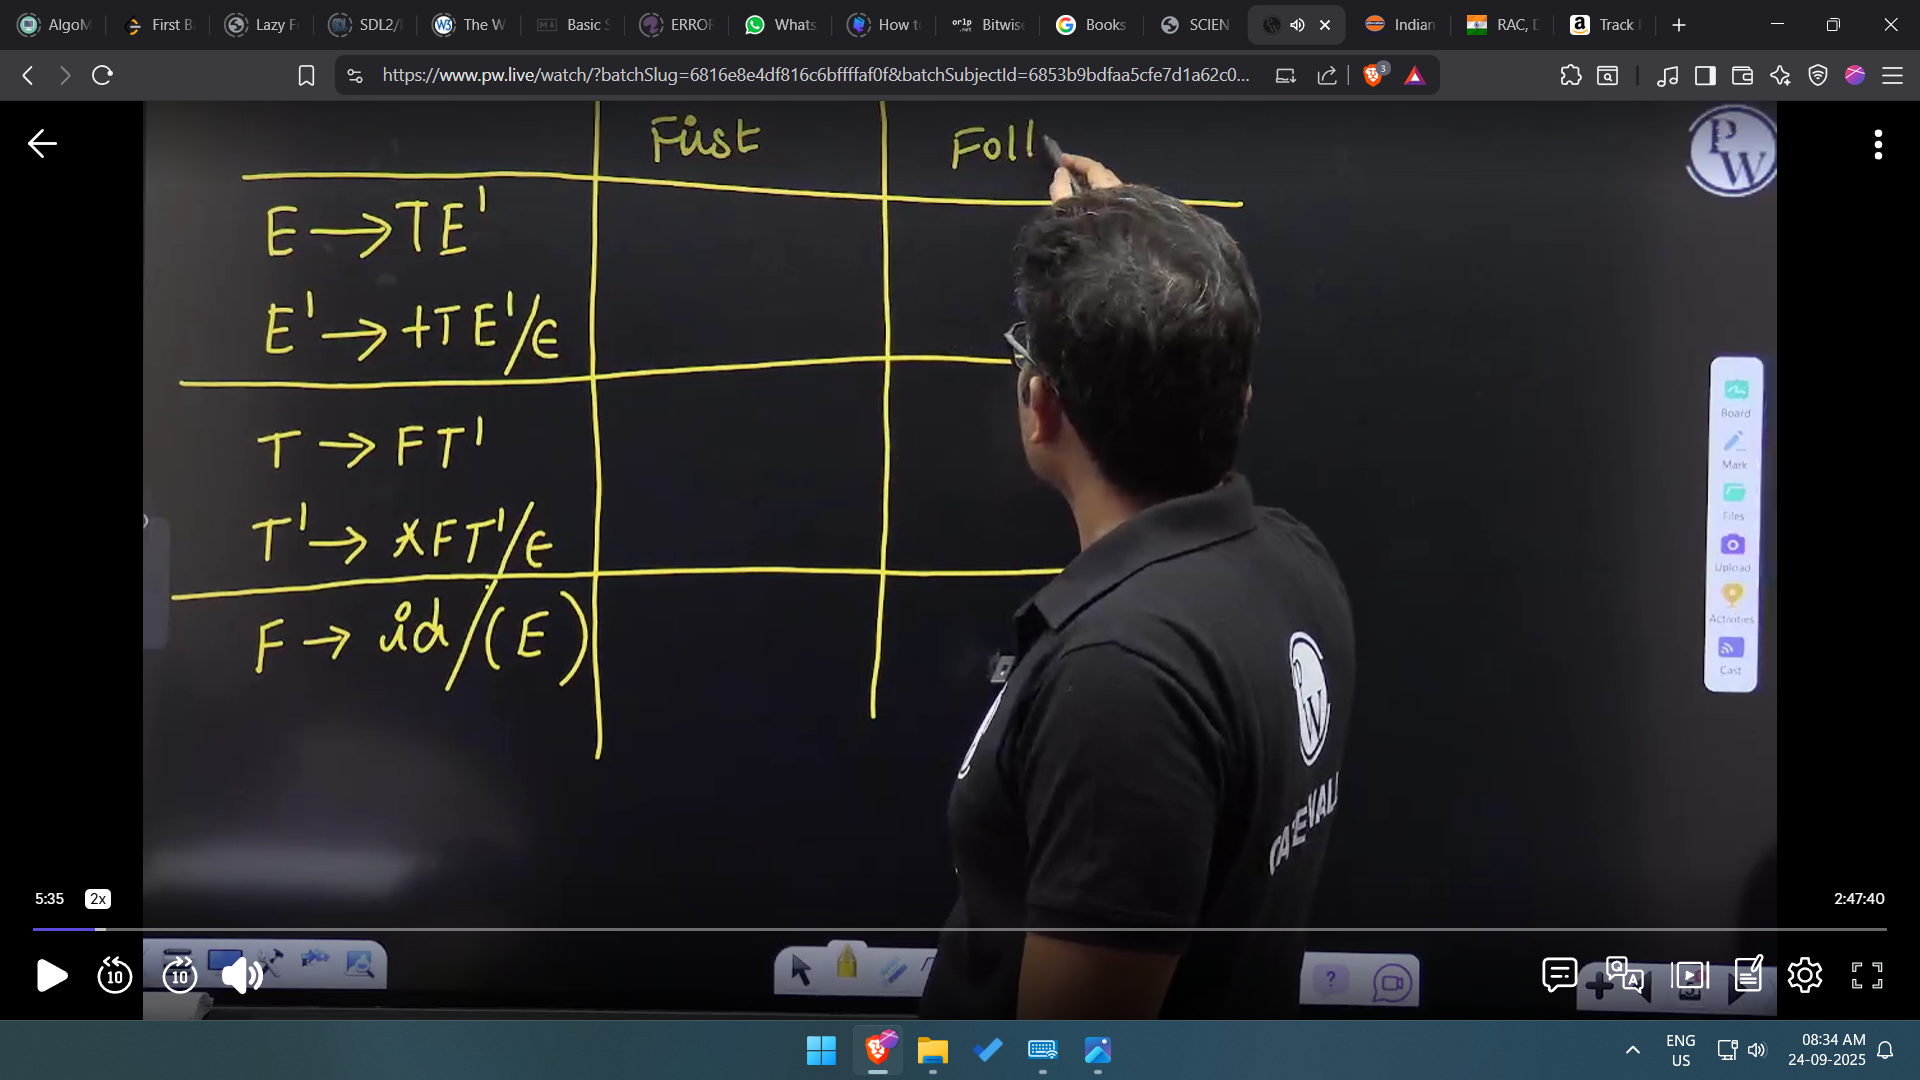 AlgoM
First B
Lazy F
SDL2/
The W
Basic S
ERROR
Whats
How t
Bitwise
Books
SCIEN
Indian
RAC, D
Track
https://www.pw.live/watch/?batchSlug=6816e8e4df816c6bffffaf0f&batchSubjectId=6853b9bdfaa5cfe7d1a62c0...
3
First
Foll
PW
E → TE'
E' → +TE'/ϵ
T → FT'
T' → *FT'/ϵ
F → id/(E)
Board
Mark
Files
Upload
Activities
Cast
5:35
2x
2:47:40
10
10
ENG
US
08:34 AM
24-09-2025